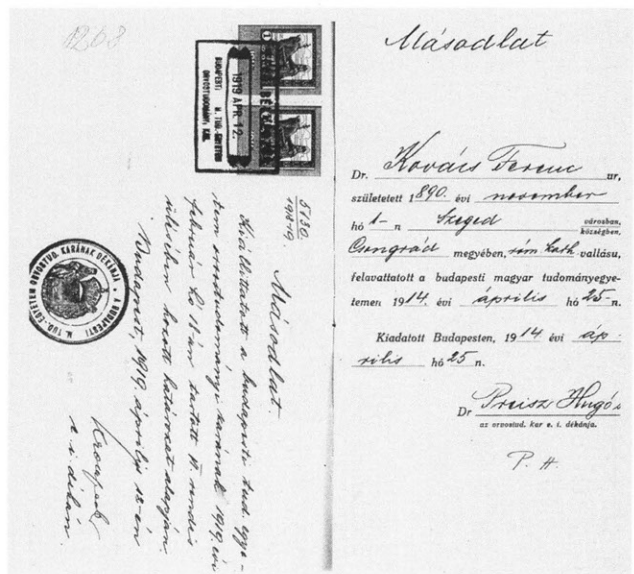 1268
1919 APR. 12.
BUDAPESTI M. TUD.-EGYETEM
ORVOSTUDOMÁNYI KAR.
5130
1918-19
Másodlat.
Kiállíttatott a budapesti tud. egye-
tem orvostudományi karának 1919. évi
február hó 18-án tartott rendes
ülésében hozott határozat alapján
Budapest, 1919. április 12-én
e. i. dékán.
A BUDAPESTI M. TUD.-EGYETEM ORVOSTUD. KARÁNAK DÉKÁNJA
Másodlat
Dr. Kovács Ferenc ur,
születetett 1890. évi november
hó 1-n Szeged városban, községben,
Csongrád megyében, róm. kath. vallásu,
felavattatott a budapesti magyar tudományegye-
temen 1914. évi április hó 25-n.
Kiadatott Budapesten, 1914 évi áp-
rilis hó 25 n.
Dr Preisz Hugó s
az orvostud. kar e. i. dékánja.
P. H.